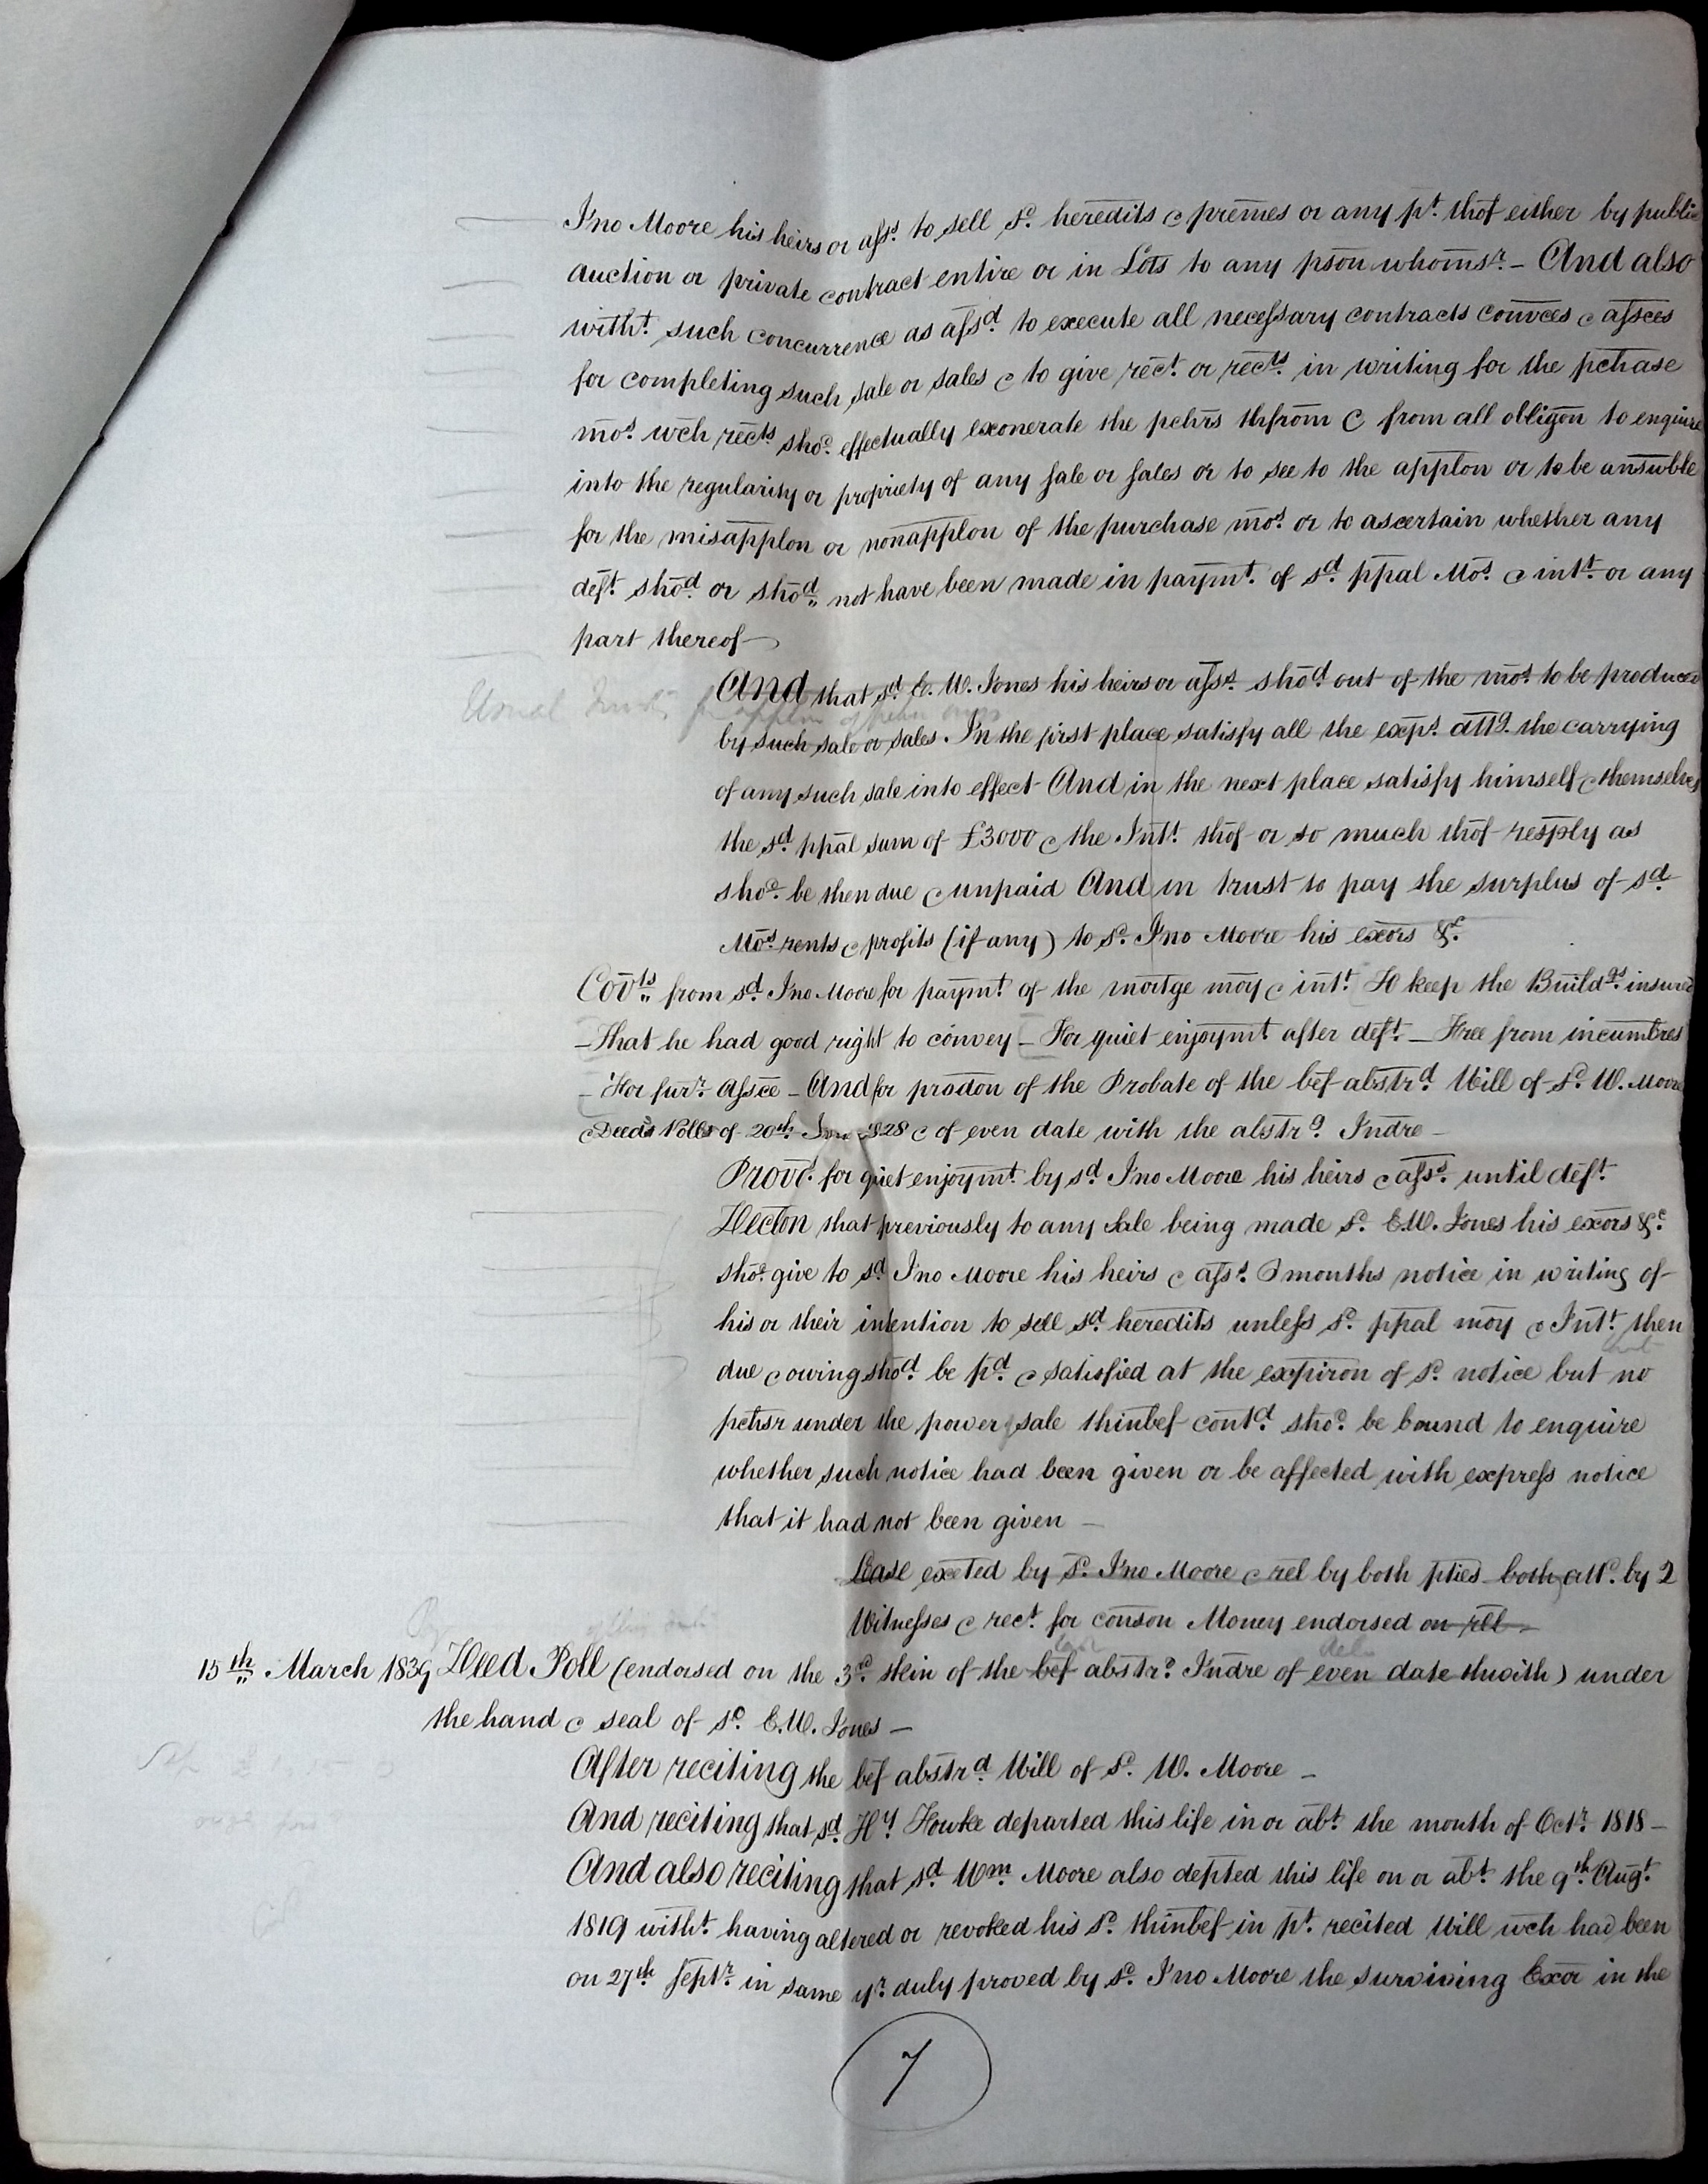 Jno Moore his heirs or afsṣ to sell sd. heredits & premes or any pt. thof either by public
auction or private contract entire or in Lots to any pson whomsr. – And also
witht. such concurrence as afsd. to execute all necefsary contracts convces & afsces
for completing such sale or sales & to give rect. or rects. in writing for the pchase
mos. wch rects shod. effectually exonerate the pchrs thfrom & from all obligon to enquire
into the regularity or propriety of any sale or sales or to see to the applon or to be answble
for the misapplon or nonapplon of the purchase mos. or to ascertain whether any
deft. shod. or shod. not have been made in paymt. of sd. ppal Mos. & intt. or any
part thereof
And that sd. E. W. Jones his heirs or afss. shod. out of the mos. to be produced
Usual Trusts for applon of pchse mony
by such sale or sales. In the first place satisfy all the exps. attg. the carrying
of any such sale into effect And in the next place satisfy himself & themselves
the sd. ppal sum of £3000 & the Intt. thof or so much thof resply as
shod. be then due & unpaid And in trust to pay the surplus of sd.
Mos. rents & profits (if any) to sd. Jno Moore his exors &c.
Covts. from sd. Jno Moore for paymt. of the mortge moy & intt. To keep the Buildgs. insured
– That he had good right to convey – For quiet enjoymt. after deft. – Free from incumbres
– For furr. afsce – And for prodon of the Probate of the bef abstrd. Will of sd. W. Moore
& Deeds Polls of 20th. 1828 & of even date with the abstrd. Indre –
Provo. for quiet enjoymt. by sd. Jno Moore his heirs & afss. until deft.
Declon that previously to any Sale being made sd. E.W. Jones his exors &c.
shod. give to sd. Jno Moore his heirs & afss. 3 months notice in writing of
his or their intention to sell sd. heredits unlefs sd. ppal moy & Intt. then
due & owing shod. be pd. & satisfied at the expiron of sd. notice but no
pchsr under the power of sale thinbef contd. shod. be bound to enquire
whether such notice had been given or be affected with exprefs notice
that it had not been given –
Lease exeted by sd. Jno Moore & rel by both pties both attd. by 2
Witnefses & rect. for conson Money endorsed on rel
15th. March 1839 Deed Poll (endorsed on the 3rd. skin of the bef abstrd. Indre of even date thwith) under
the hand & seal of sd. E.W. Jones –
After reciting the bef abstrd. Will of sd. W. Moore –
And reciting that sd. Hy. Fowke departed this life in or abt. the month of Octr. 1818 –
And also reciting that sd. Wm. Moore also depted this life on or abt. the 9th. Augt.
1819 witht. having altered or revoked his sd. thinbef in pt. recited Will wch had been
on 27th. Septr. in same yr. duly proved by sd. Jno Moore the surviving Exor in the
7